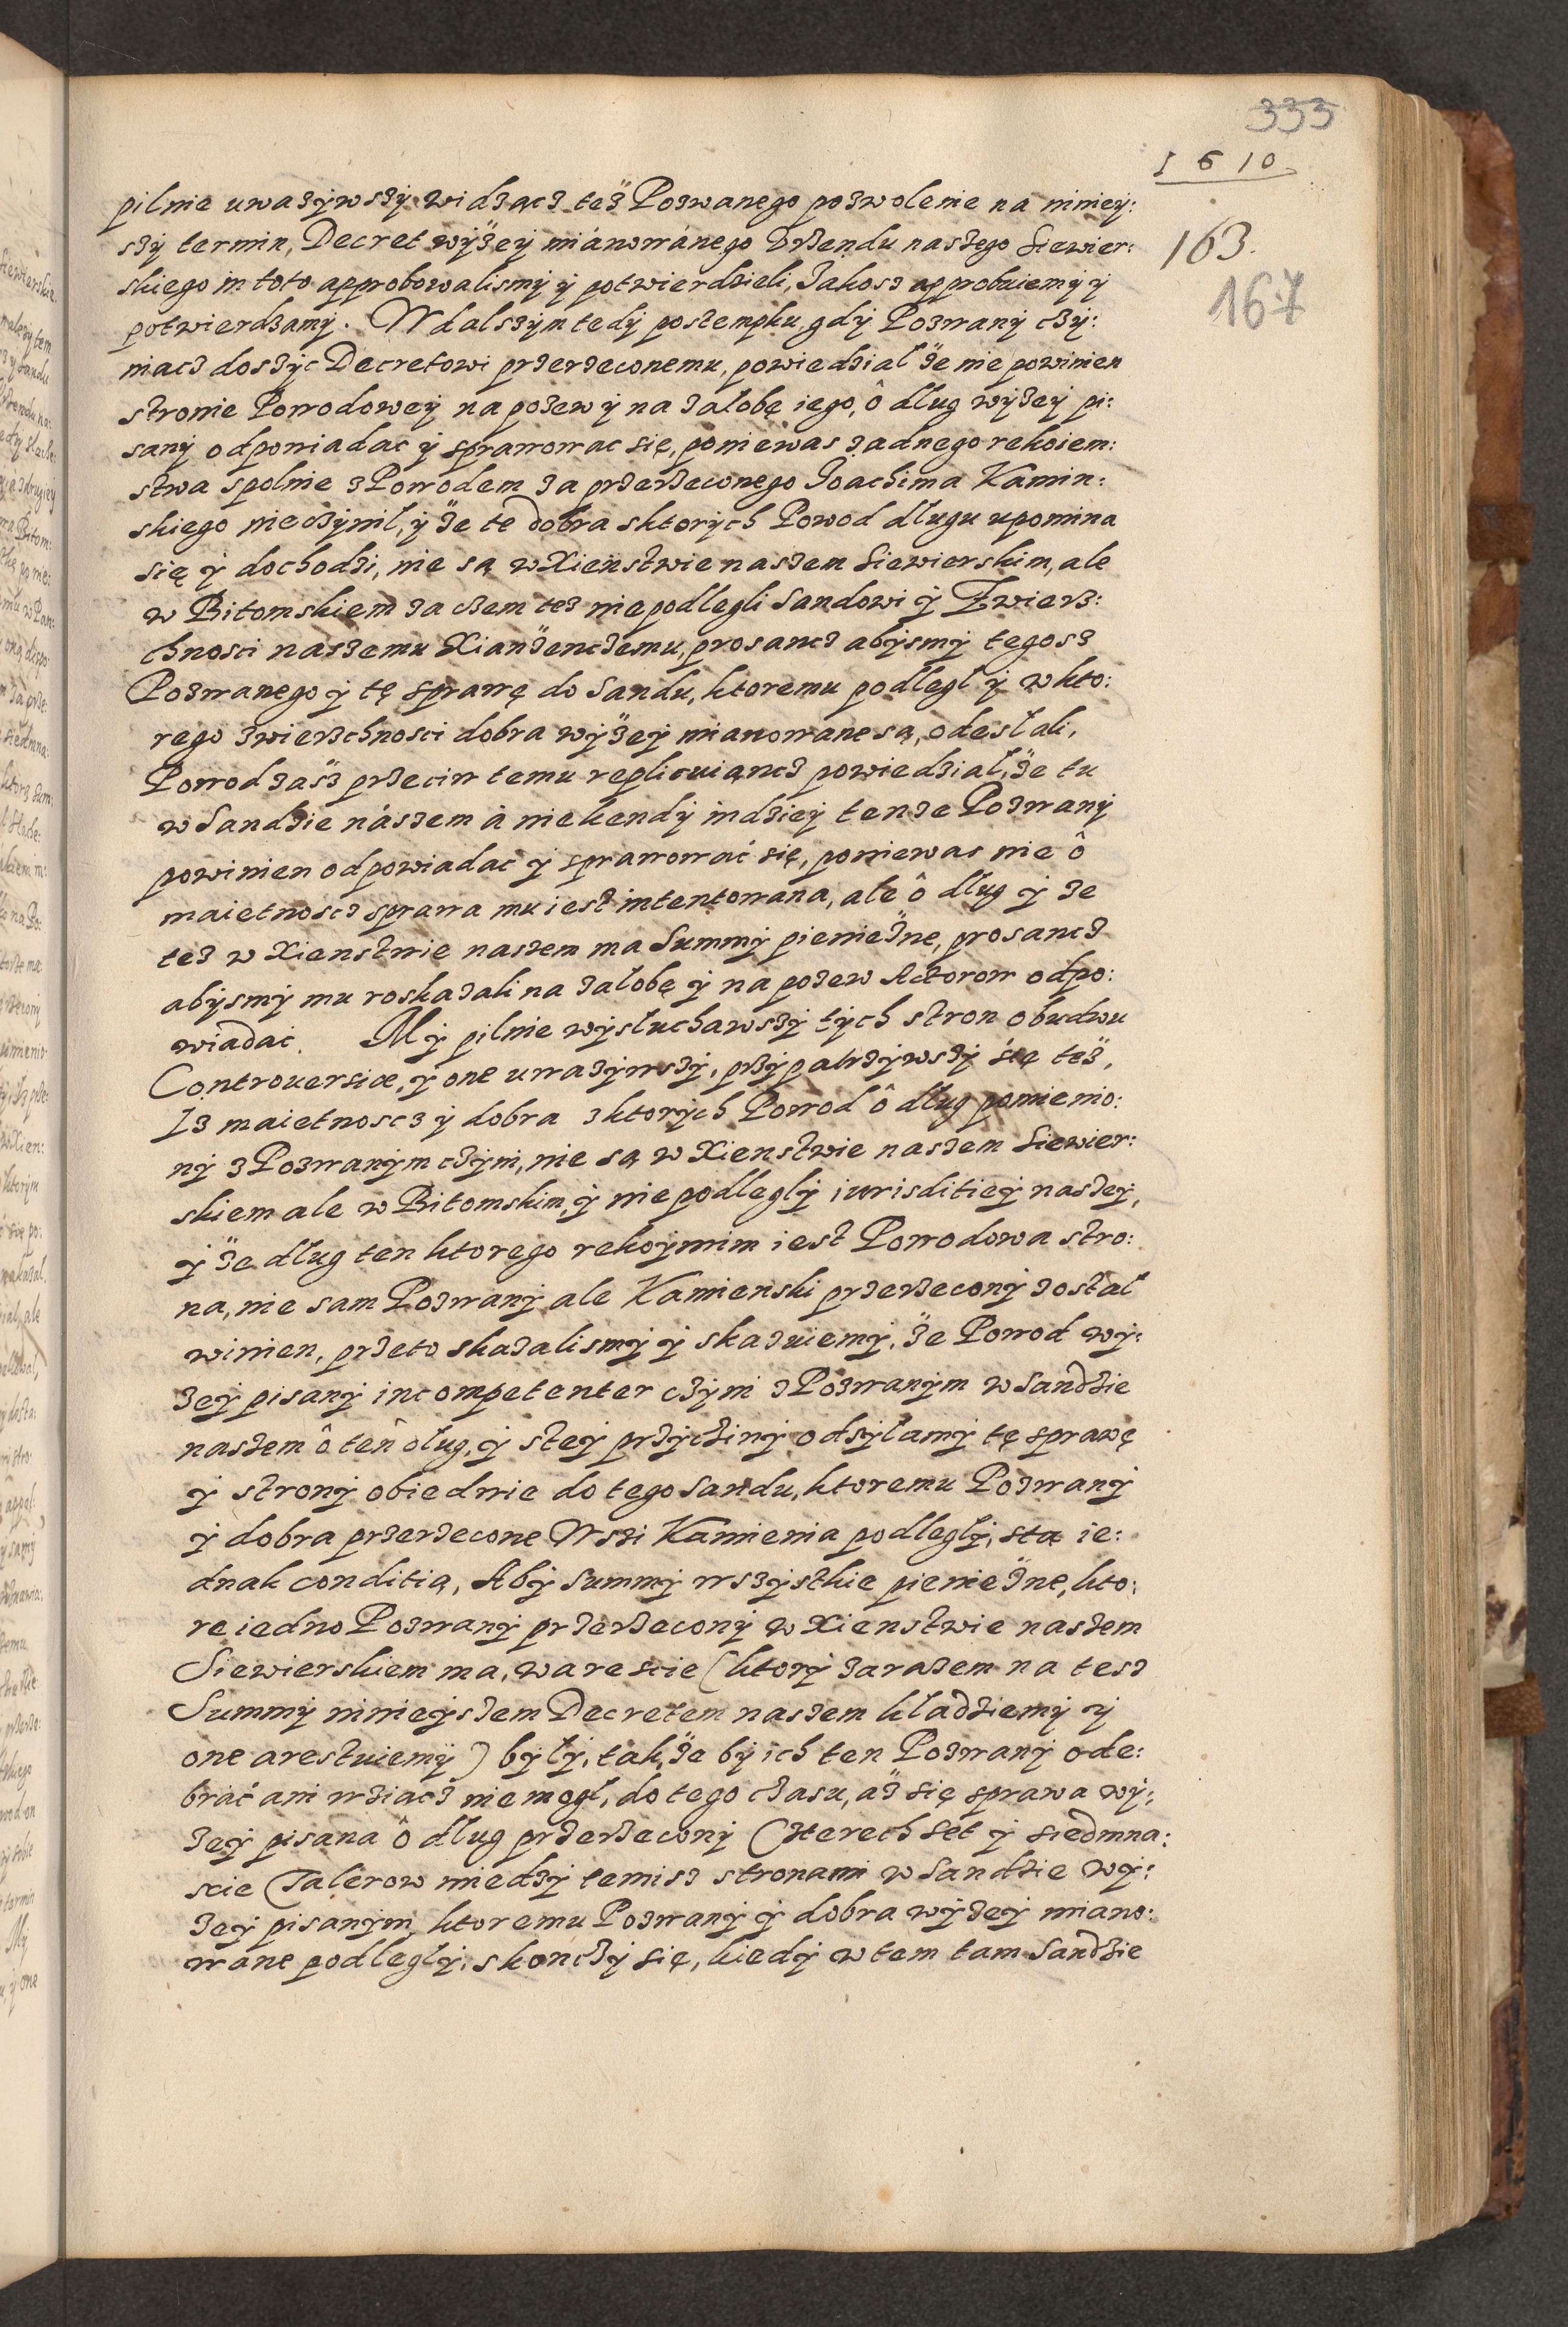 333
1610
163.
167
pilnie uwazÿwszÿ widząncz też Pozwanego pozwolenie na niniey:
szÿ termin, Decret wÿżeÿ miánowánego Vrzendu naszego Siewier:
skiego in toto approbowalismÿ ÿ potwierdzieli, Jakosz approbuiemÿ ÿ
potwierdzamÿ. W dalszÿm tedÿ postempku, gdÿ Pozwanÿ czÿ:
niacz doszÿc Decretowi przerzeconemu, powiedzial że nie powinien
stronie Powodoweÿ na pozew ÿ na zalobę iego, ô dług wÿzeÿ pi:
sanÿ odpowiadac ÿ sprawowac się, poniewas zadnego rekoiem:
stwa spolnie z Powodem za przerzeconego Joachima Kamin:
skiego nieczÿnil, ÿ że te dobra sktorÿch Powod długu upomina
się ÿ dochodzi, nie są w Xienstwie naszem Siewierskim, ale
w Bitomskiem za czem tez niepodlegli Sandowi ÿ Zwiersz:
chnosci naszemu Xianżenczemu, prosancz abÿsmÿ tegosz
Pozwanego ÿ tę sprawę do Sandu, ktoremu podlegl ÿ w kto:
rego zwierzchnosci dobra wÿżeÿ mianowane są, odesłali,
Powod zasz przeciw temu replicuiancz powiedział, że tu
w Sandzie nászem á niekendÿ indzieÿ tenze Pozwanÿ
powinien odpowiadac ÿ sprawować się, poniewas nie ô
maietnoscz sprawa mu iest intentowana, ale ô dług ÿ ze
tez w Xienstwie naszem ma Summÿ pienieżne, prosancz
abÿsmÿ mu roskazali na zalobę ÿ na pozew Actorow odpo:
wiadać. Mÿ pilnie wÿsłuchawszÿ tÿch stron obudwu
Controuersiæ, ÿ one uwazÿwszÿ, przÿpatrzÿwszÿ się też,
Iz maietnoscz ÿ dobra z ktorÿch Powod ô dług pomienio:
nÿ z Pozwanÿm czÿni, nie są w Xienstwie naszem Siewier:
skiem ale w Bitomskim, ÿ niepodległÿ iurisditieÿ naszeÿ,
ÿ że dług ten ktorego rekoÿmim iest Powodowa stro:
na, nie sam Pozwanÿ ale Kamienski przerzeconÿ został
winien, przeto skazalismÿ ÿ skazuiemÿ, że Powod wÿ:
zeÿ pisanÿ incompetenter czÿni z Pozwanÿm w Sandzie
naszem ô ten dług, ÿ steÿ przÿczinÿ odsÿłamÿ tę sprawę
ÿ stronÿ obiedwie do tego Sandu, ktoremu Pozwanÿ
ÿ dobra przerzecone Wszi Kamienia podległÿ, sta ie:
dnak conditią, Abÿ Summÿ wszÿstkie pienieżne, kto:
re iedno Pozwanÿ przerzeconÿ w Xienstwie naszem
Siewierskiem ma, w arescie (ktorÿ zarazem na tesz
Summÿ ninieÿszem Decretem naszem kładziemÿ ÿ
one arestuiemÿ) bÿłÿ, tak, że bÿ ich ten Pozwanÿ ode:
brać ani wziacz nie mogł, do tego czasu, asz się sprawa wÿ:
zeÿ pisana ô dług przerzeconÿ Czterech set ÿ siedmna:
scie Talerow miedzÿ temisz stronami w Sandzie wÿ:
zeÿ pisanÿm, ktoremu Pozwanÿ ÿ dobra wÿzeÿ miano:
wane podległÿ, skonczÿ się, kiedÿ w tem tam Sandzie